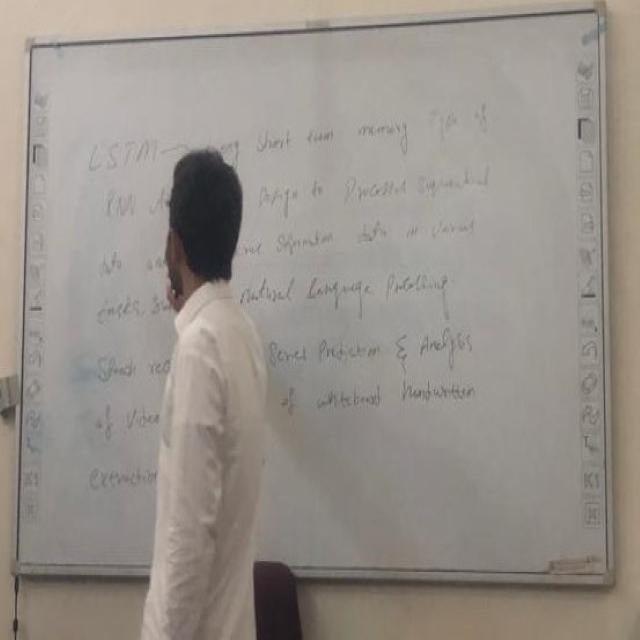 LSTM → Long Short term memory Type of
RNN Design to Processed Sequential
data and Sequention data in various
tasks Natural Language Processing
Speech Series Prediction & Analysis
of Video of whiteboard handwritten
extraction